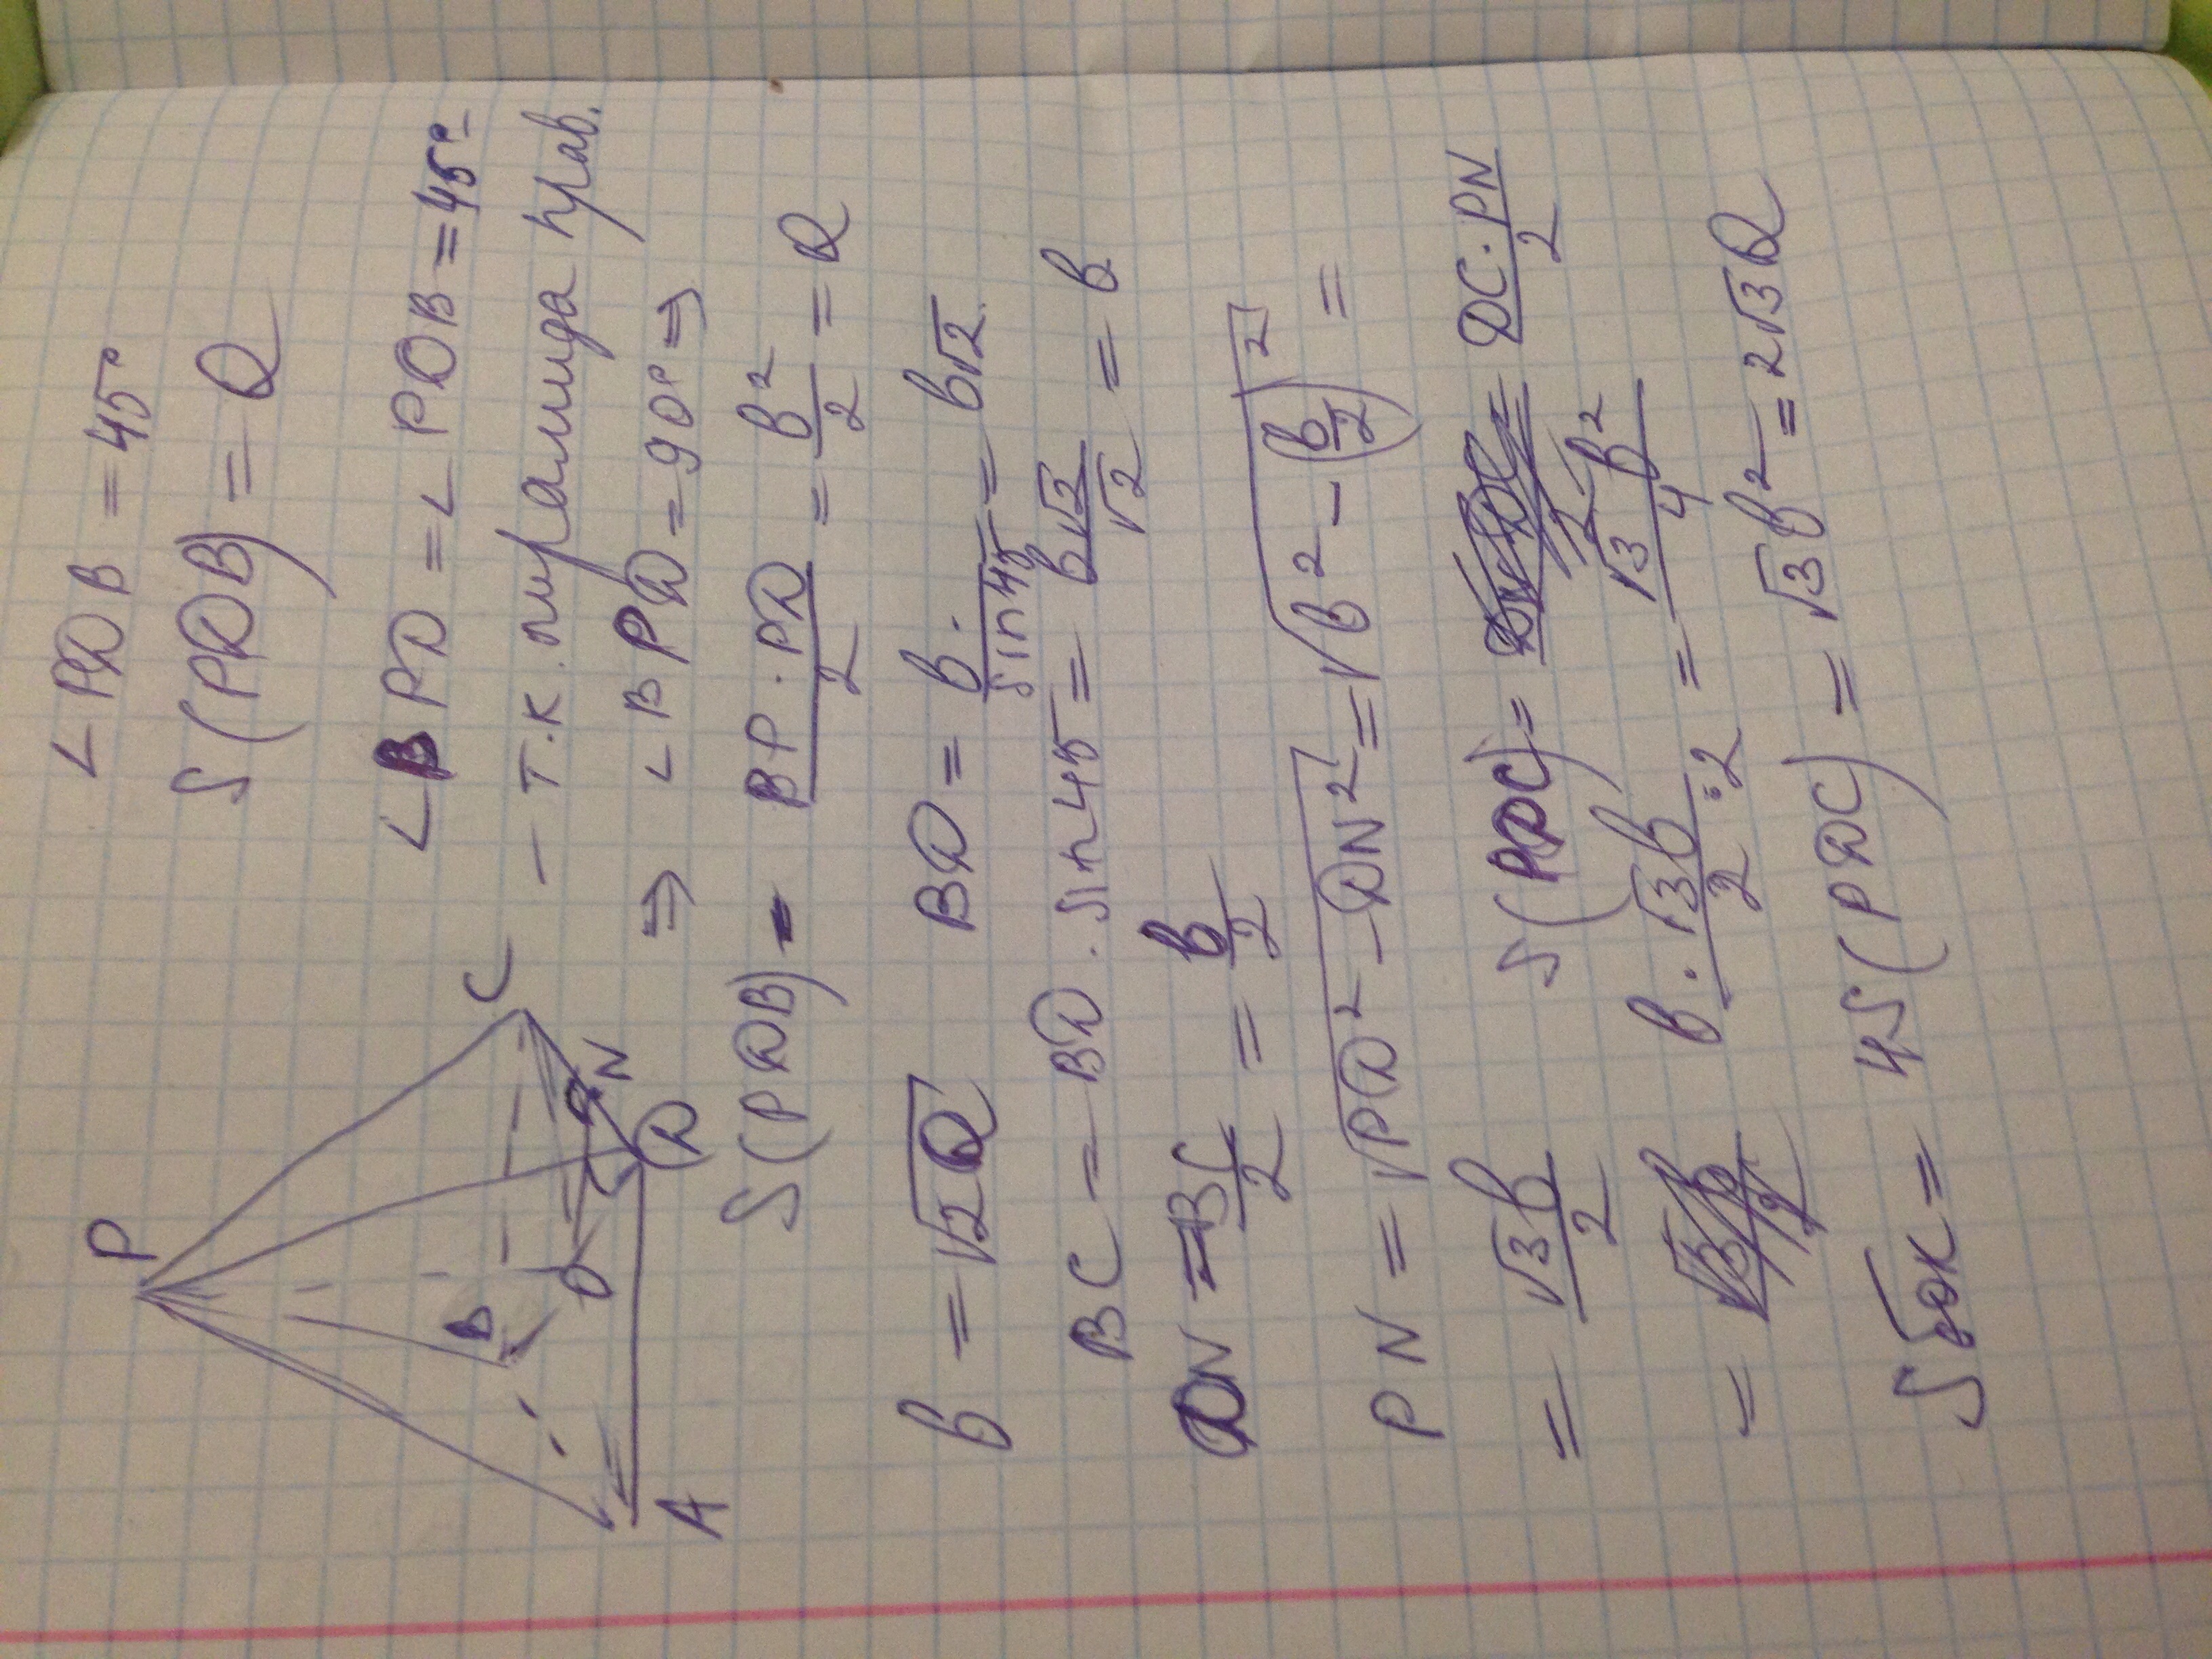 P
B
C
O
N
A
D
∠ PDB = 45°
S(PDB) = Q
∠ BPD = ∠ PDB = 45° –
– т.к. пирамида прав.
⇒ ∠ BPD = 90° ⇒
S(PDB) = BP · PD / 2 = b² / 2 = Q
b = √2Q BD = b · / sin 45 = b√2.
BC = BD · sin 45 = b√2 / √2 = b
DN = BC / 2 = b / 2
PN = √PD² – DN² = √b² – (b/2)² =
= √3b / 2 S(PDC) = DC · PN / 2
= b · √3b / 2 · 2 = √3 b² / 4
Sбок = 4S(PDC) = √3b² = 2√3Q